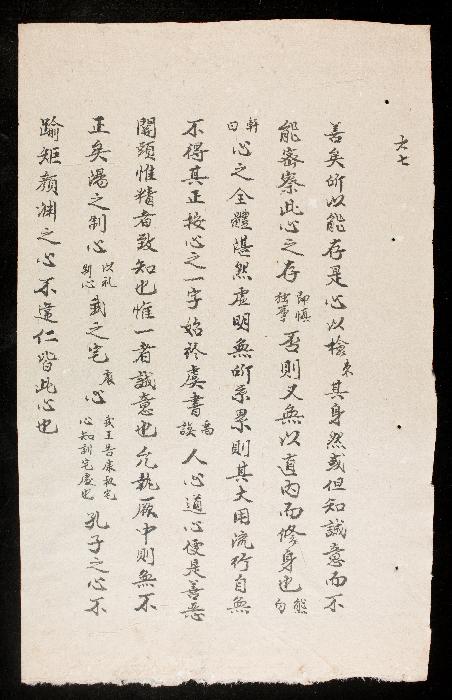 六七
善矣所以能存是心以檢束其身然或但知誠意而不
能密察此心之存即慎独事否則又無以直內而修身也熊勿
軒曰心之全體湛然虛明無所系累則其大用流行自無
不得其正按心之一字始於虞書禹謨人心道心便是善惡
關頭惟精者致知也惟一者誠意也允執厥中則無不
正矣湯之制心以礼制心武之宅衷心武王告康叔宅心知訓宅處也孔子之心不
踰矩顏淵之心不違仁皆此心也